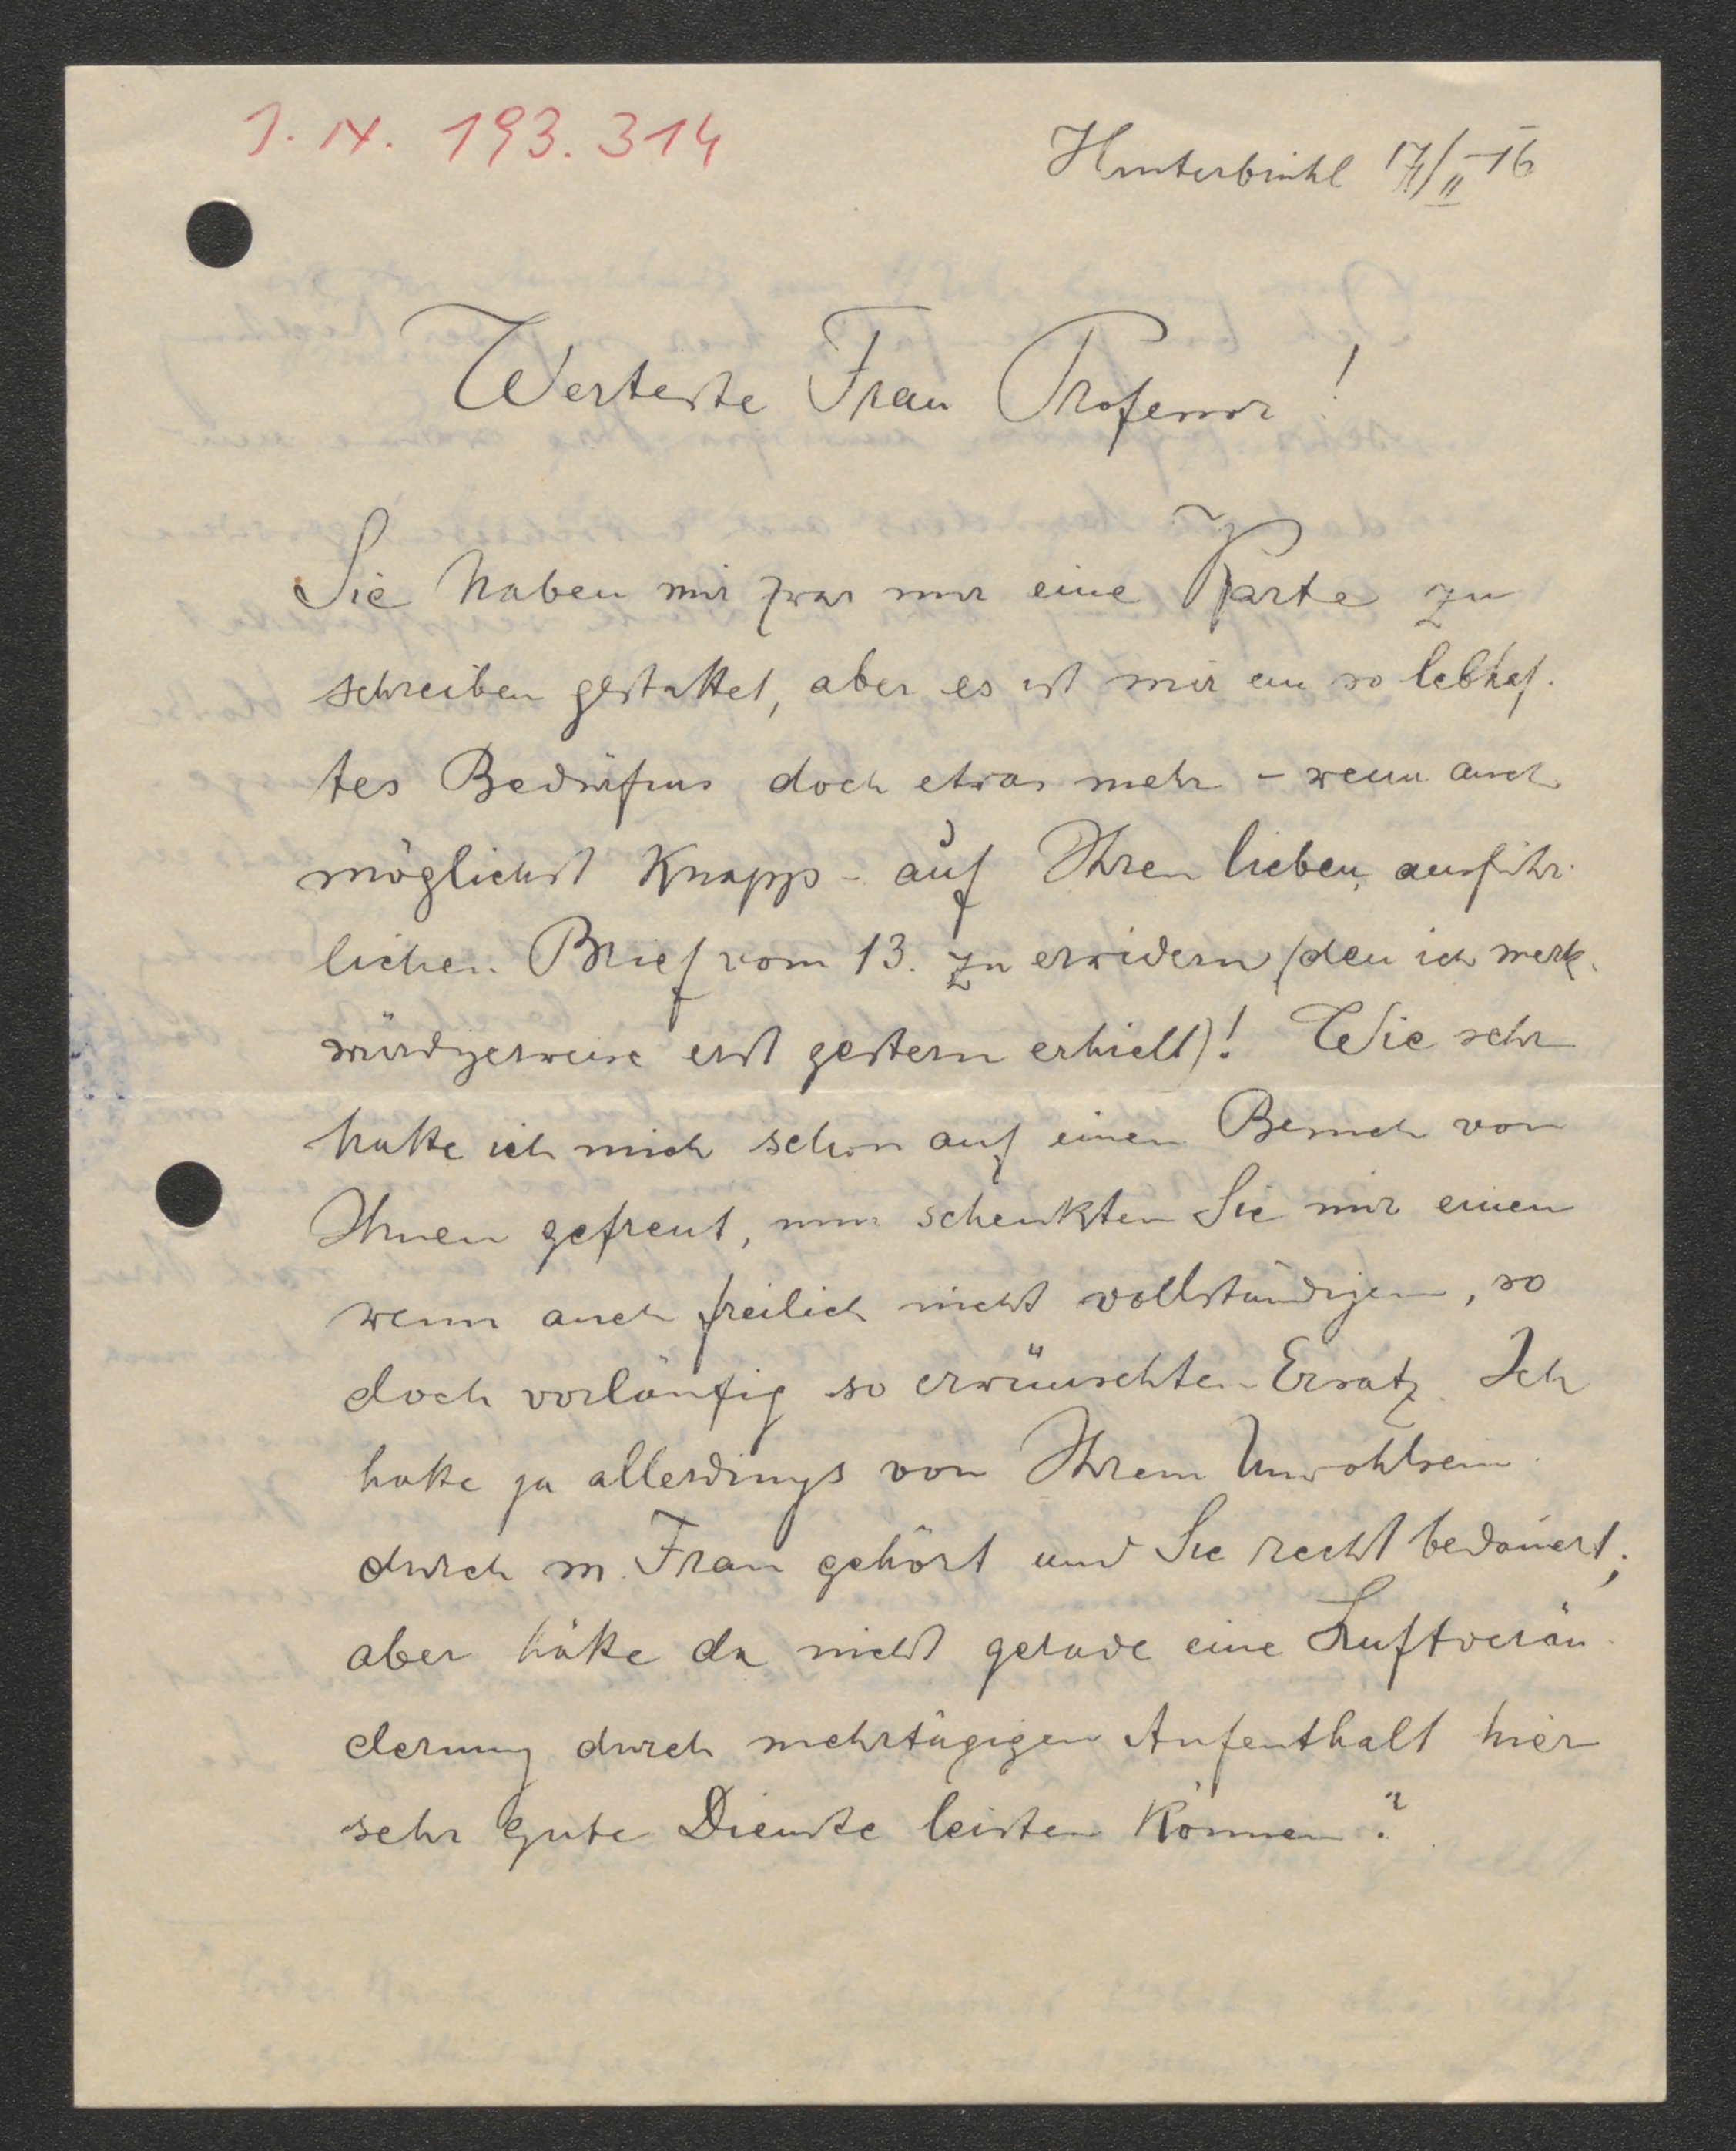 J. N. 193.314
Hinterbrühl 17/II 16
Werteste Frau Professor!
Sie haben mir zwar nur eine Karte zu
schreiben gestattet, aber es ist mir ein so lebhaf-
tes Bedürfnis, doch etwas mehr - wenn auch
möglichst knapp - auf Ihren lieben, ausführ-
lichen Brief vom 13. zu erwidern (den ich merk-
würdigerweise erst gestern erhielt)! Wie sehr
hatte ich mich schon auf einen Besuch von
Ihnen gefreut, nun schenkten Sie mir einen
wenn auch freilich nicht vollständigen, so
doch vorläufig so erwünschten Ersatz. Ich
hatte ja allerdings von Ihrem Unwohlsein
durch m. Frau gehört und Sie recht bedauert;
aber hätte da nicht gerade eine Luftverän-
derung durch mehrtägigen Aufenthalt hier
sehr gute Dienste leisten können?